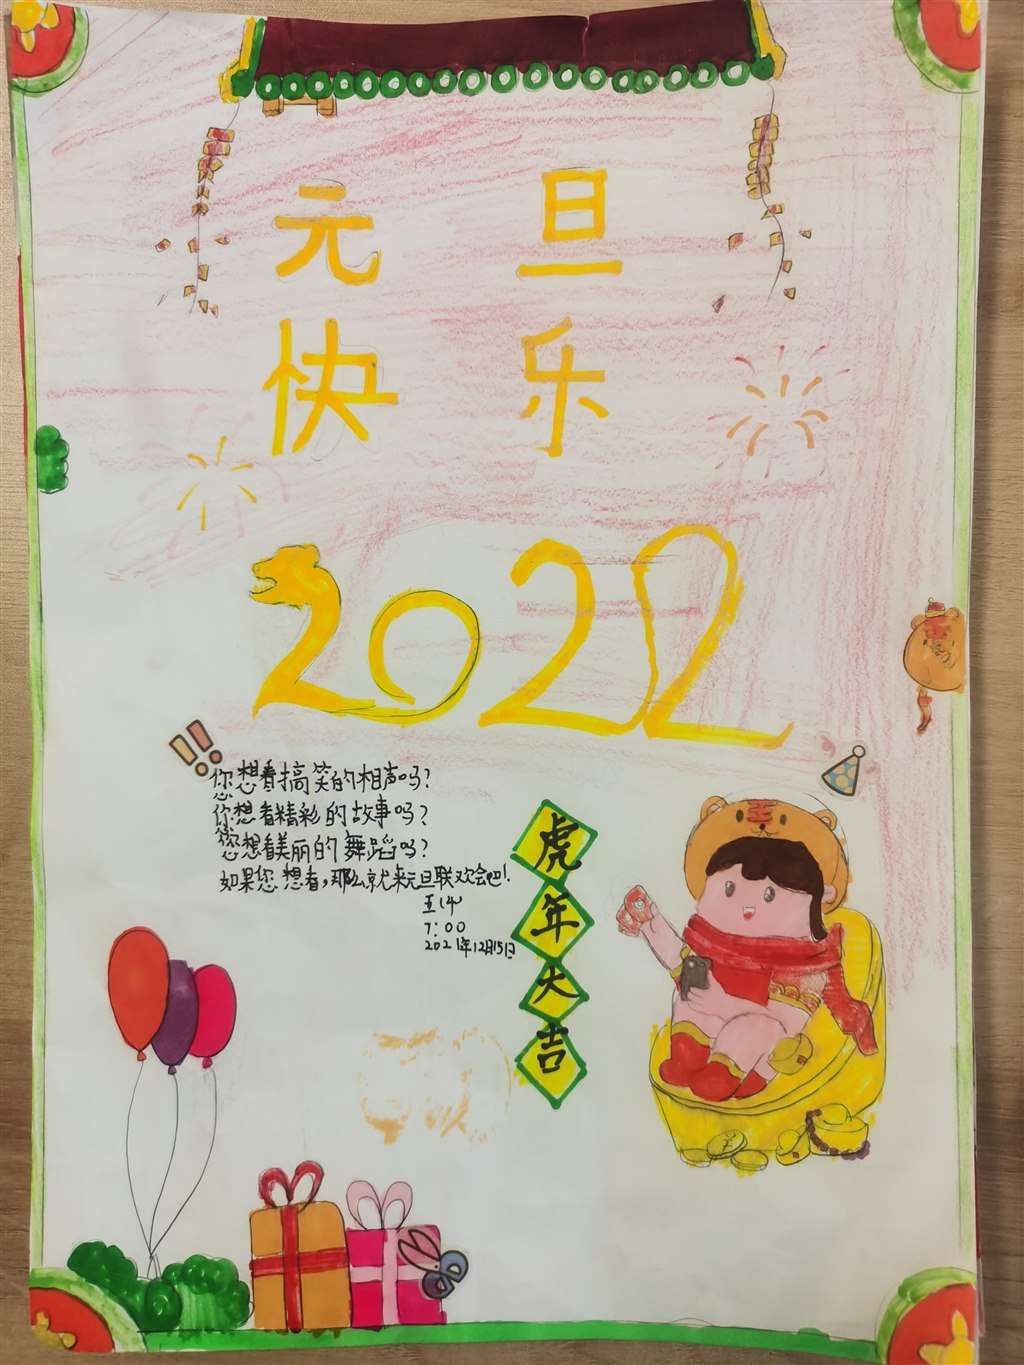 元旦
快乐
2022
您想看搞笑的相声吗?
你想看精彩的故事吗?
您想看美丽的舞蹈吗?
如果您想看,那么就来元旦联欢会吧!
五(4)
7:00
2021年12月15日
虎
年
大
吉
王